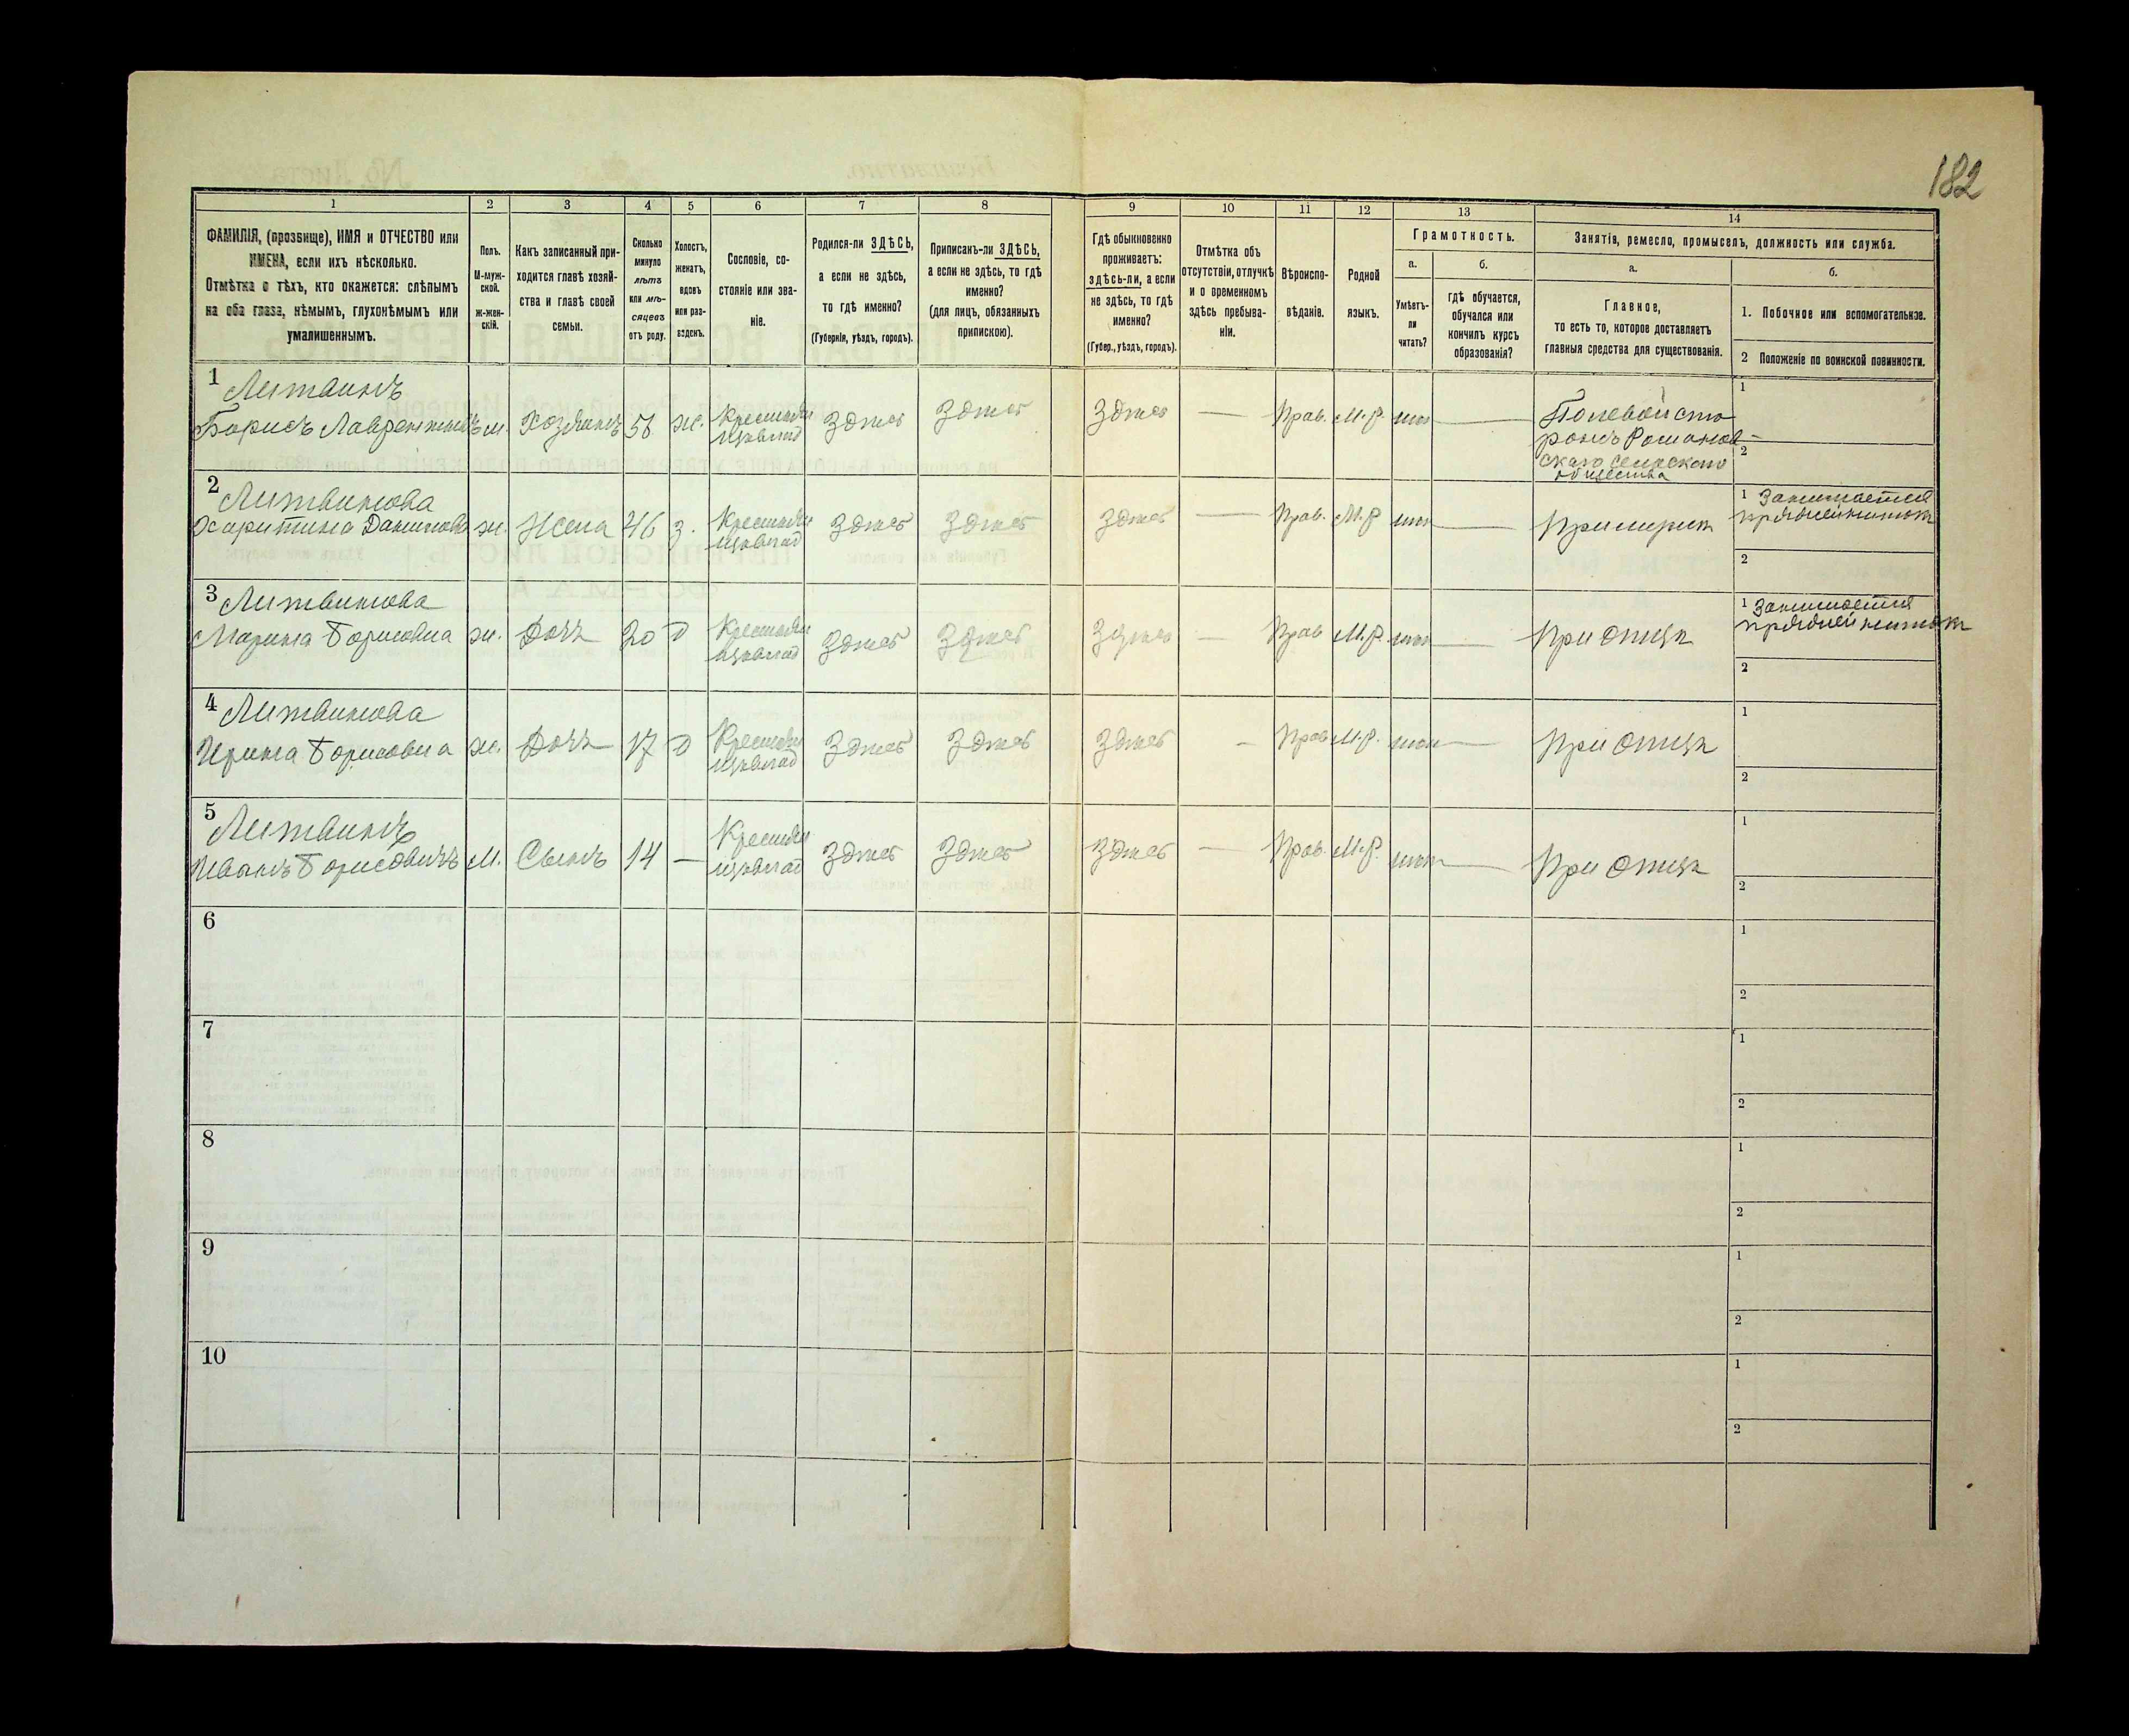 182
1 2 3 4 5 6 7 8 9 10 11 12 13 14
ФАМИЛІЯ, (прозвище), ИМЯ и ОТЧЕСТВО или
ИМЕНА, если ихъ нѣсколько.
Отмѣтка о тѣхъ, кто окажется: слѣпымъ
на оба глаза, нѣмымъ, глухонѣмымъ или
умалишеннымъ.
Полъ.
М-муж-
ской.
ж-жен-
скій.
Какъ записанный при-
ходится главѣ хозяй-
ства и главѣ своей
семьи.
Сколько
минуло
лѣтъ
или мѣ-
сяцевъ
отъ роду.
Холостъ,
женатъ,
вдовъ
или раз-
веденъ.
Сословіе, со-
стояніе или зва-
ніе.
Родился-ли ЗДѢСЬ,
а если не здѣсь,
то гдѣ именно?
(Губернія, уѣздъ, городъ).
Приписанъ-ли ЗДѢСЬ,
а если не здѣсь, то гдѣ
именно?
(для лицъ, обязанныхъ
припискою).
Гдѣ обыкновенно
проживаетъ:
здѣсь-ли, а если
не здѣсь, то гдѣ
именно?
(Губер., уѣздъ, городъ).
Отмѣтка объ
отсутствіи, отлучкѣ
и о временномъ
здѣсь пребыва-
ніи.
Вѣроиспо-
вѣданіе.
Родной
языкъ.
Грамотность.
а.
Умѣетъ-
ли
читать?
б.
гдѣ обучается,
обучался или
кончилъ курсъ
образованія?
Занятія, ремесло, промыселъ, должность или служба.
а.
Главное,
то есть то, которое доставляетъ
главныя средства для существованія.
б.
1. Побочное или вспомогательное.
2 Положеніе по воинской повинности.
1 Литвинъ
Борисъ Лаврентіевъ м. Хозяинъ ж. Здѣсь Здѣсь Здѣсь — Прав. М.Р. нѣт —
Полевой сто
рожъ Романов-
скаго сельскаго
общества
1
2
2 Литвинова
Харитина Данилова ж. Жена 46 з. Здѣсь Здѣсь Здѣсь — Прав. М.Р. нѣт —
При мужѣ
1 Занимается
пряжей нитокъ
2
3 Литвинова
Марина Борисовна ж. Дочь 20 д Здѣсь Здѣсь Здѣсь — Прав М.Р. нѣт — При отцѣ
1 Занимается
пряжей нитокъ
2
4 Литвинова
Ирина Борисовна ж. Дочь 17 д Здѣсь Здѣсь Здѣсь — Прав М.Р. нѣт — При отцѣ
1
2
5 Литвинъ
Иванъ Борисовичъ М. Сынъ 14 — Здѣсь Здѣсь Здѣсь — Прав. М.Р. нѣт — При отцѣ
1
2
6
1
2
7
1
2
8
1
2
9
1
2
10
1
2